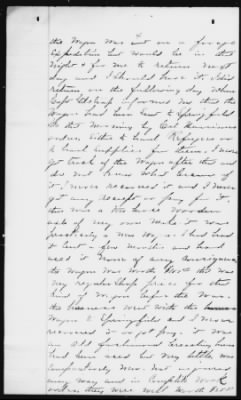 the Wagon was out on a forage
Expedition but would be in that
Night & for me to return next
day and I should have it. I did
return on the following day when
Capt informed me that the
Wagon had been sent to Springfield
in the morning by Col
order, either to Refugees or
haul Supplies for them, I never
got track of the Wagon after this and
do not know what became of
it, I never recovered it and I never
got any receipt or pay for it,
this was a two horse wooden
axle of my own make it was
practically a new Wagon as I had used
it but a few months and had
used it none of any consequence
the Wagon was worth this was
my regular Shop price for this
kind of Wagon before the War.
the harness went with the
Wagon to Springfield and I never
recovered it or got pay. it was
an old fashioned breeching harness
had been used but very little, was
comparatively new. not injured
any way and in complete work
order they were well worth